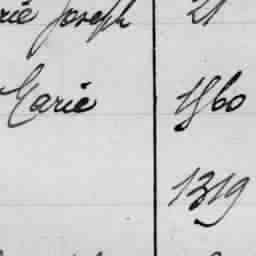 rie Joseph 21
Marie 1560
1319